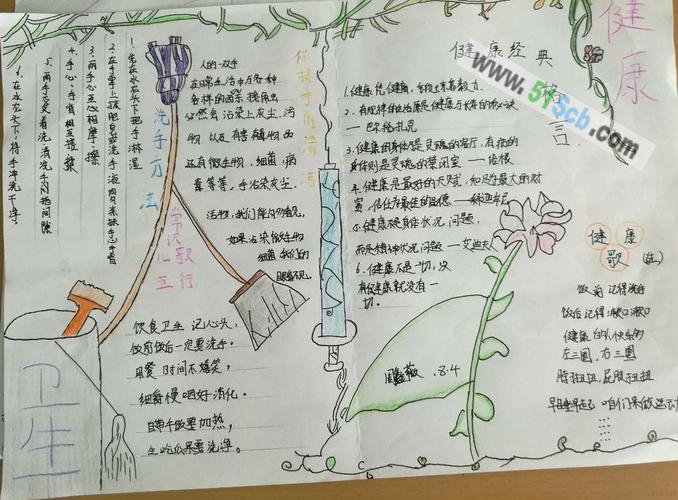 健康
健康经典
格言
www.5YScb.com
1.健康
2.有规律的生活原是健康与长寿的秘诀
——巴尔扎克
3.健康的身体是灵魂的客厅,有病的
身体则是灵魂的禁闭室——培根
4.健康是最好的天赋,知足是最大的财
富,信任为最佳的品德
5.健康不是身体状况问题,
而是精神状况问题——艾迪夫人
6.健康不是一切,没
有健康就没有一
切。
健康
歌
饭前记得洗手
饭后记得漱口漱口
健康的人快乐的
左三圈,右三圈
脖扭扭,屁股扭扭
早睡早起 咱们来做运动
保持手的清洁
人的一双手
在日常生活中与各种
各样的
必然会沾染上灰尘、污
物 以及有害
还有微生物,细菌,病
毒等等,手沾灰尘、
污物,我们
如果沾染微生物
细菌,我们的
眼看不见。
洗手方法
1.先在水龙头下把手淋湿
2.在手掌上
3.两手心互相摩擦
4.手心、手背相互搓揉
5.两手交叉着洗,清洗手闪指间隙
6.在水龙头下,将手冲洗干净。
常识歌
儿
五行
饮食卫生 记心头,
饭前饭后一定要洗手。
用餐 时间不嬉笑,
细嚼慢咽好消化。
自带午饭要加热,
生吃瓜果要洗净。
卫生
8.4